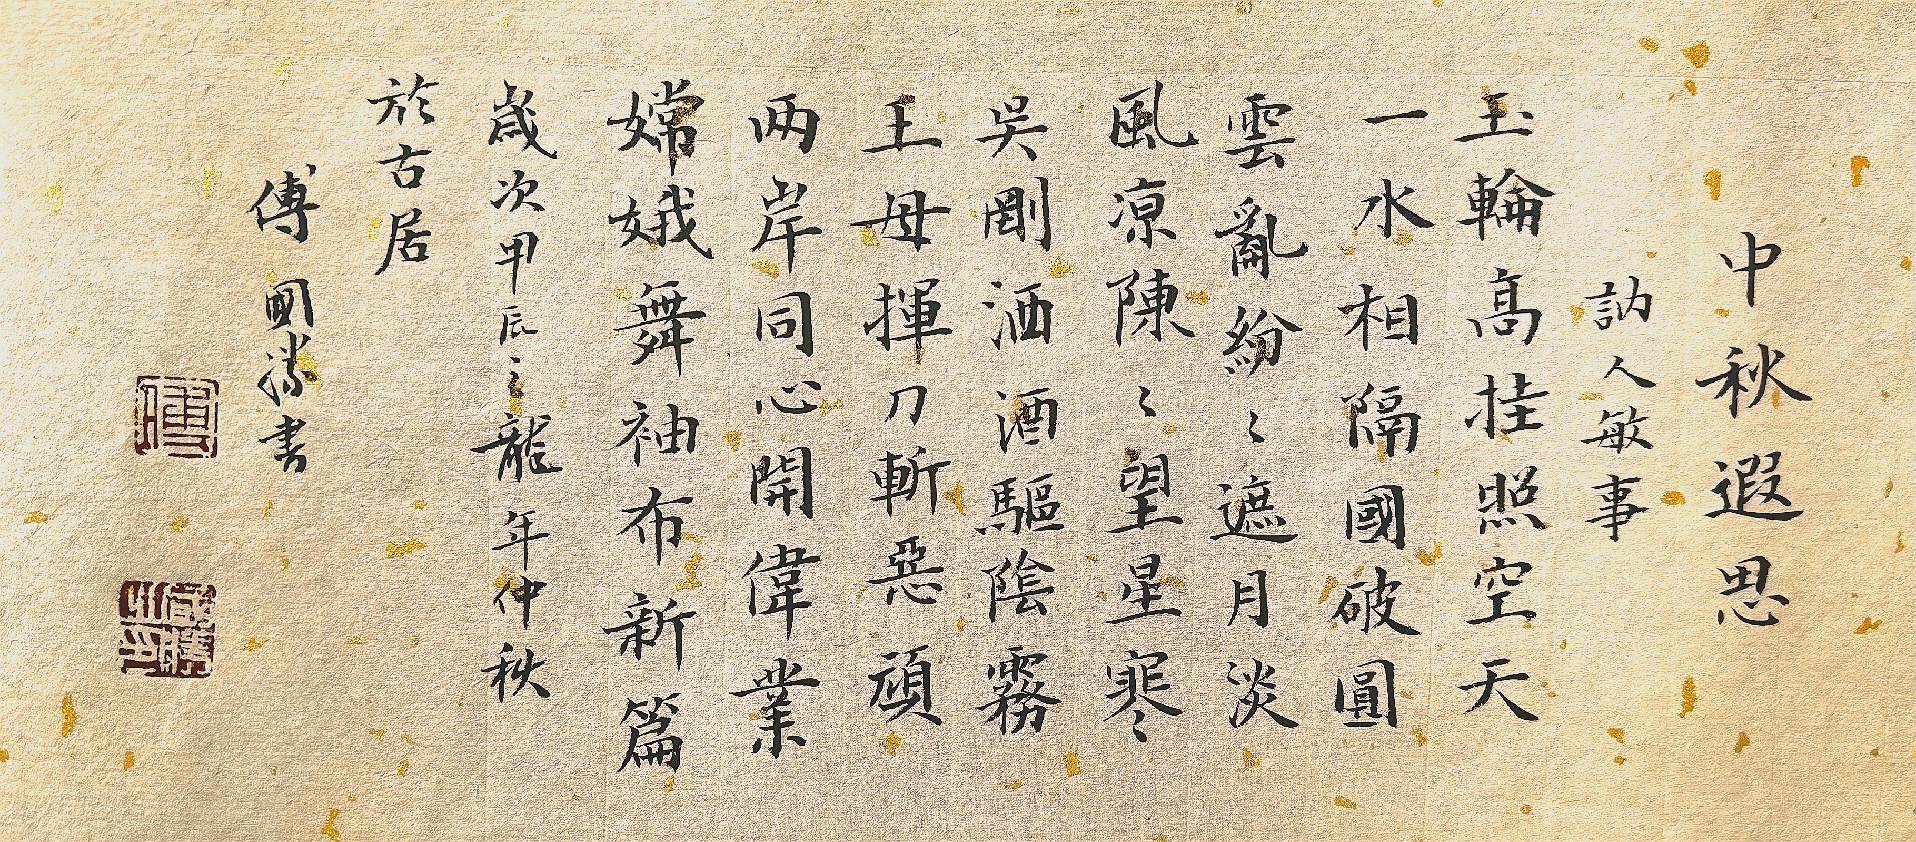 中秋遐思
訥人敏事
玉輪高挂照空天
一水相隔國破圓
雲亂紛〻遮月淡
風涼陳〻望星寒
吳剛洒酒驅陰霧
王母揮刀斬惡頑
两岸同心開偉業
嫦娥舞袖布新篇
歲次甲辰之龍年仲秋
於古居
傅國勝書
傅
國勝之印